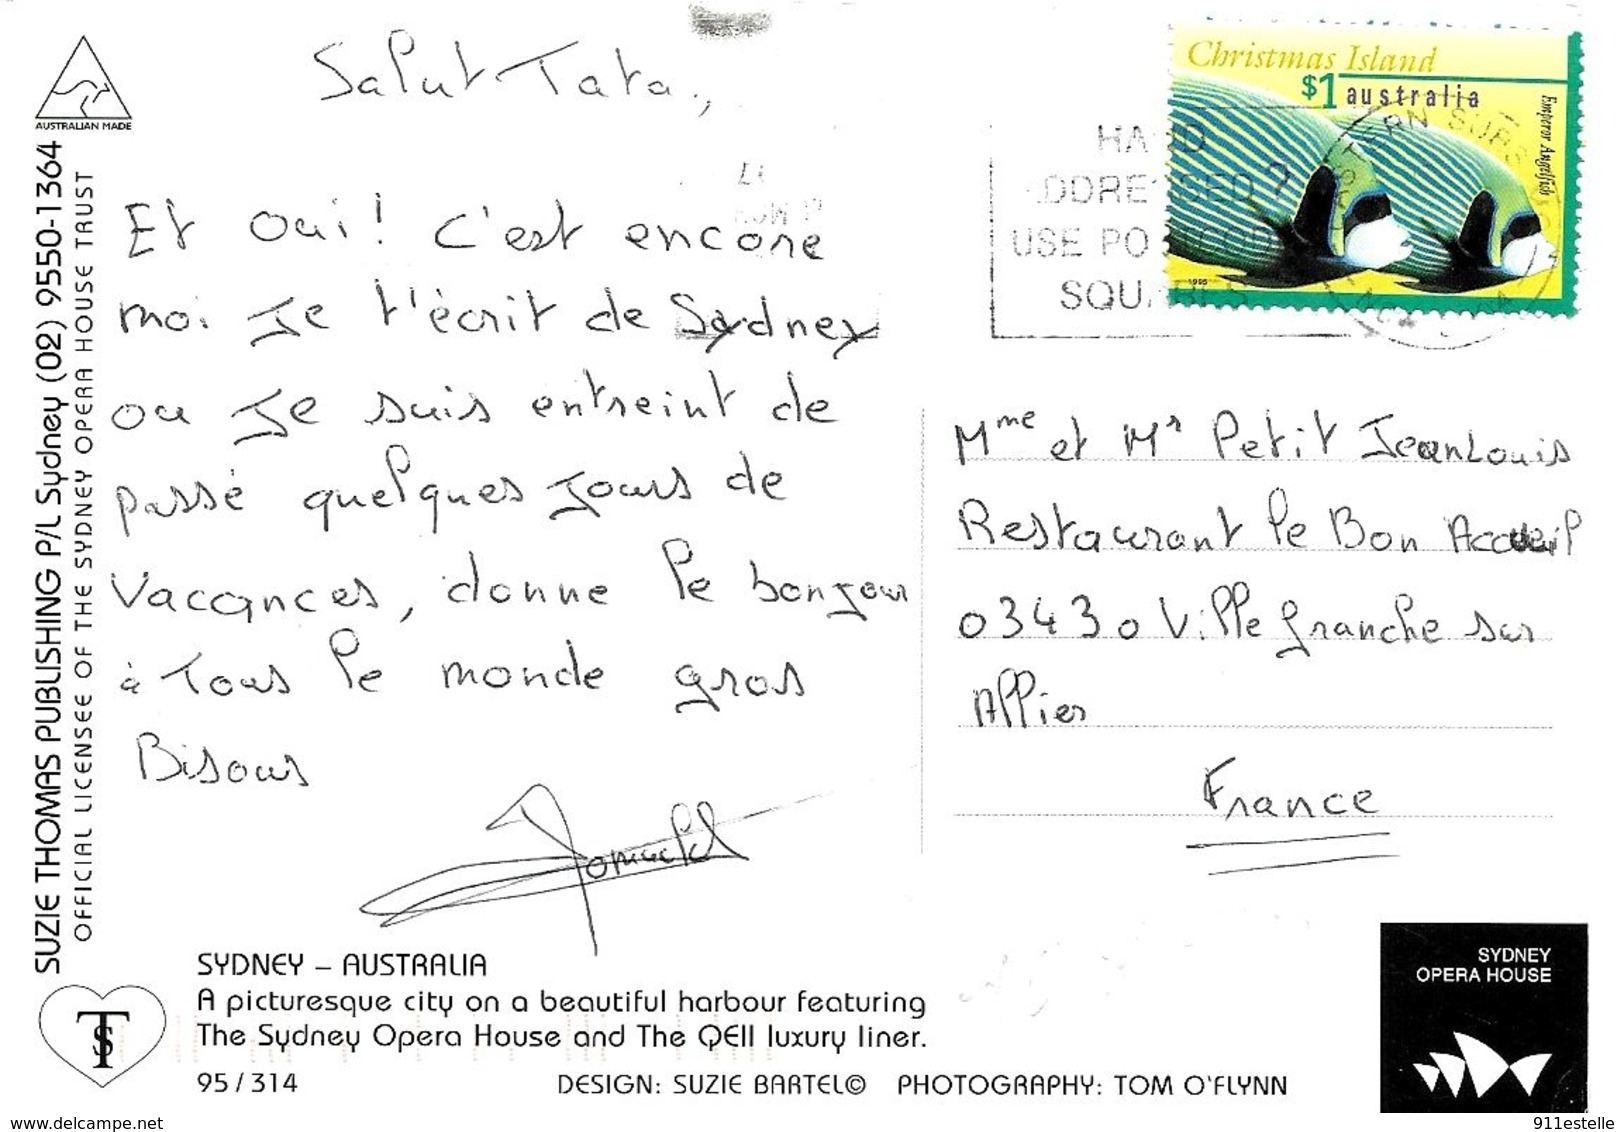 AUSTRALIAN MADE
SUZIE THOMAS PUBLISHING P/L Sydney (02) 9550-1364
OFFICIAL LICENSEE OF THE SYDNEY OPERA HOUSE TRUST
Salut Tata,
Et oui! c'est encore
moi Je t'écrit de Sydney
ou Je suis entreint de
passé quelques Jours de
Vacances, donne le bonjour
à Tous le monde gros
Bisous
Christmas Island
$1 australia
Emperor Angelfish
1995
HAND
ADDRESSED?
USE POSTCODE
SQUARES
Mme et Mr Petit JeanLouis
Restaurant le Bon Accueil
03430 Villefranche sur
Allier
France
SYDNEY – AUSTRALIA
A picturesque city on a beautiful harbour featuring
The Sydney Opera House and The QEII luxury liner.
95/314
DESIGN: SUZIE BARTEL© PHOTOGRAPHY: TOM O'FLYNN
SYDNEY
OPERA HOUSE
TS
www.delcampe.net
911estelle